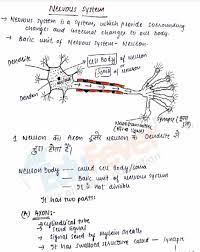 Nervous System
→ Nervous system is a system, which provide surrounding
changes and internal changes to our body.
→ Basic unit of Nervous system - Neuron.
Dendrite
cell Body of neuron
of neuron
Dendon
Synapse
Neurotransmitter
1 Neuron का Axon दूसरे Neuron के Dendrite से
जुड़ा होता है।
Neuron Body — called cell Body/
— Basic unit of nervous system
— It is not divible
It had two parts:
(A) Axons-
→ cylindrical tube
→ Send signal
→ Signal send by myelin sheath
→ It has swollen structure called — Synaptic